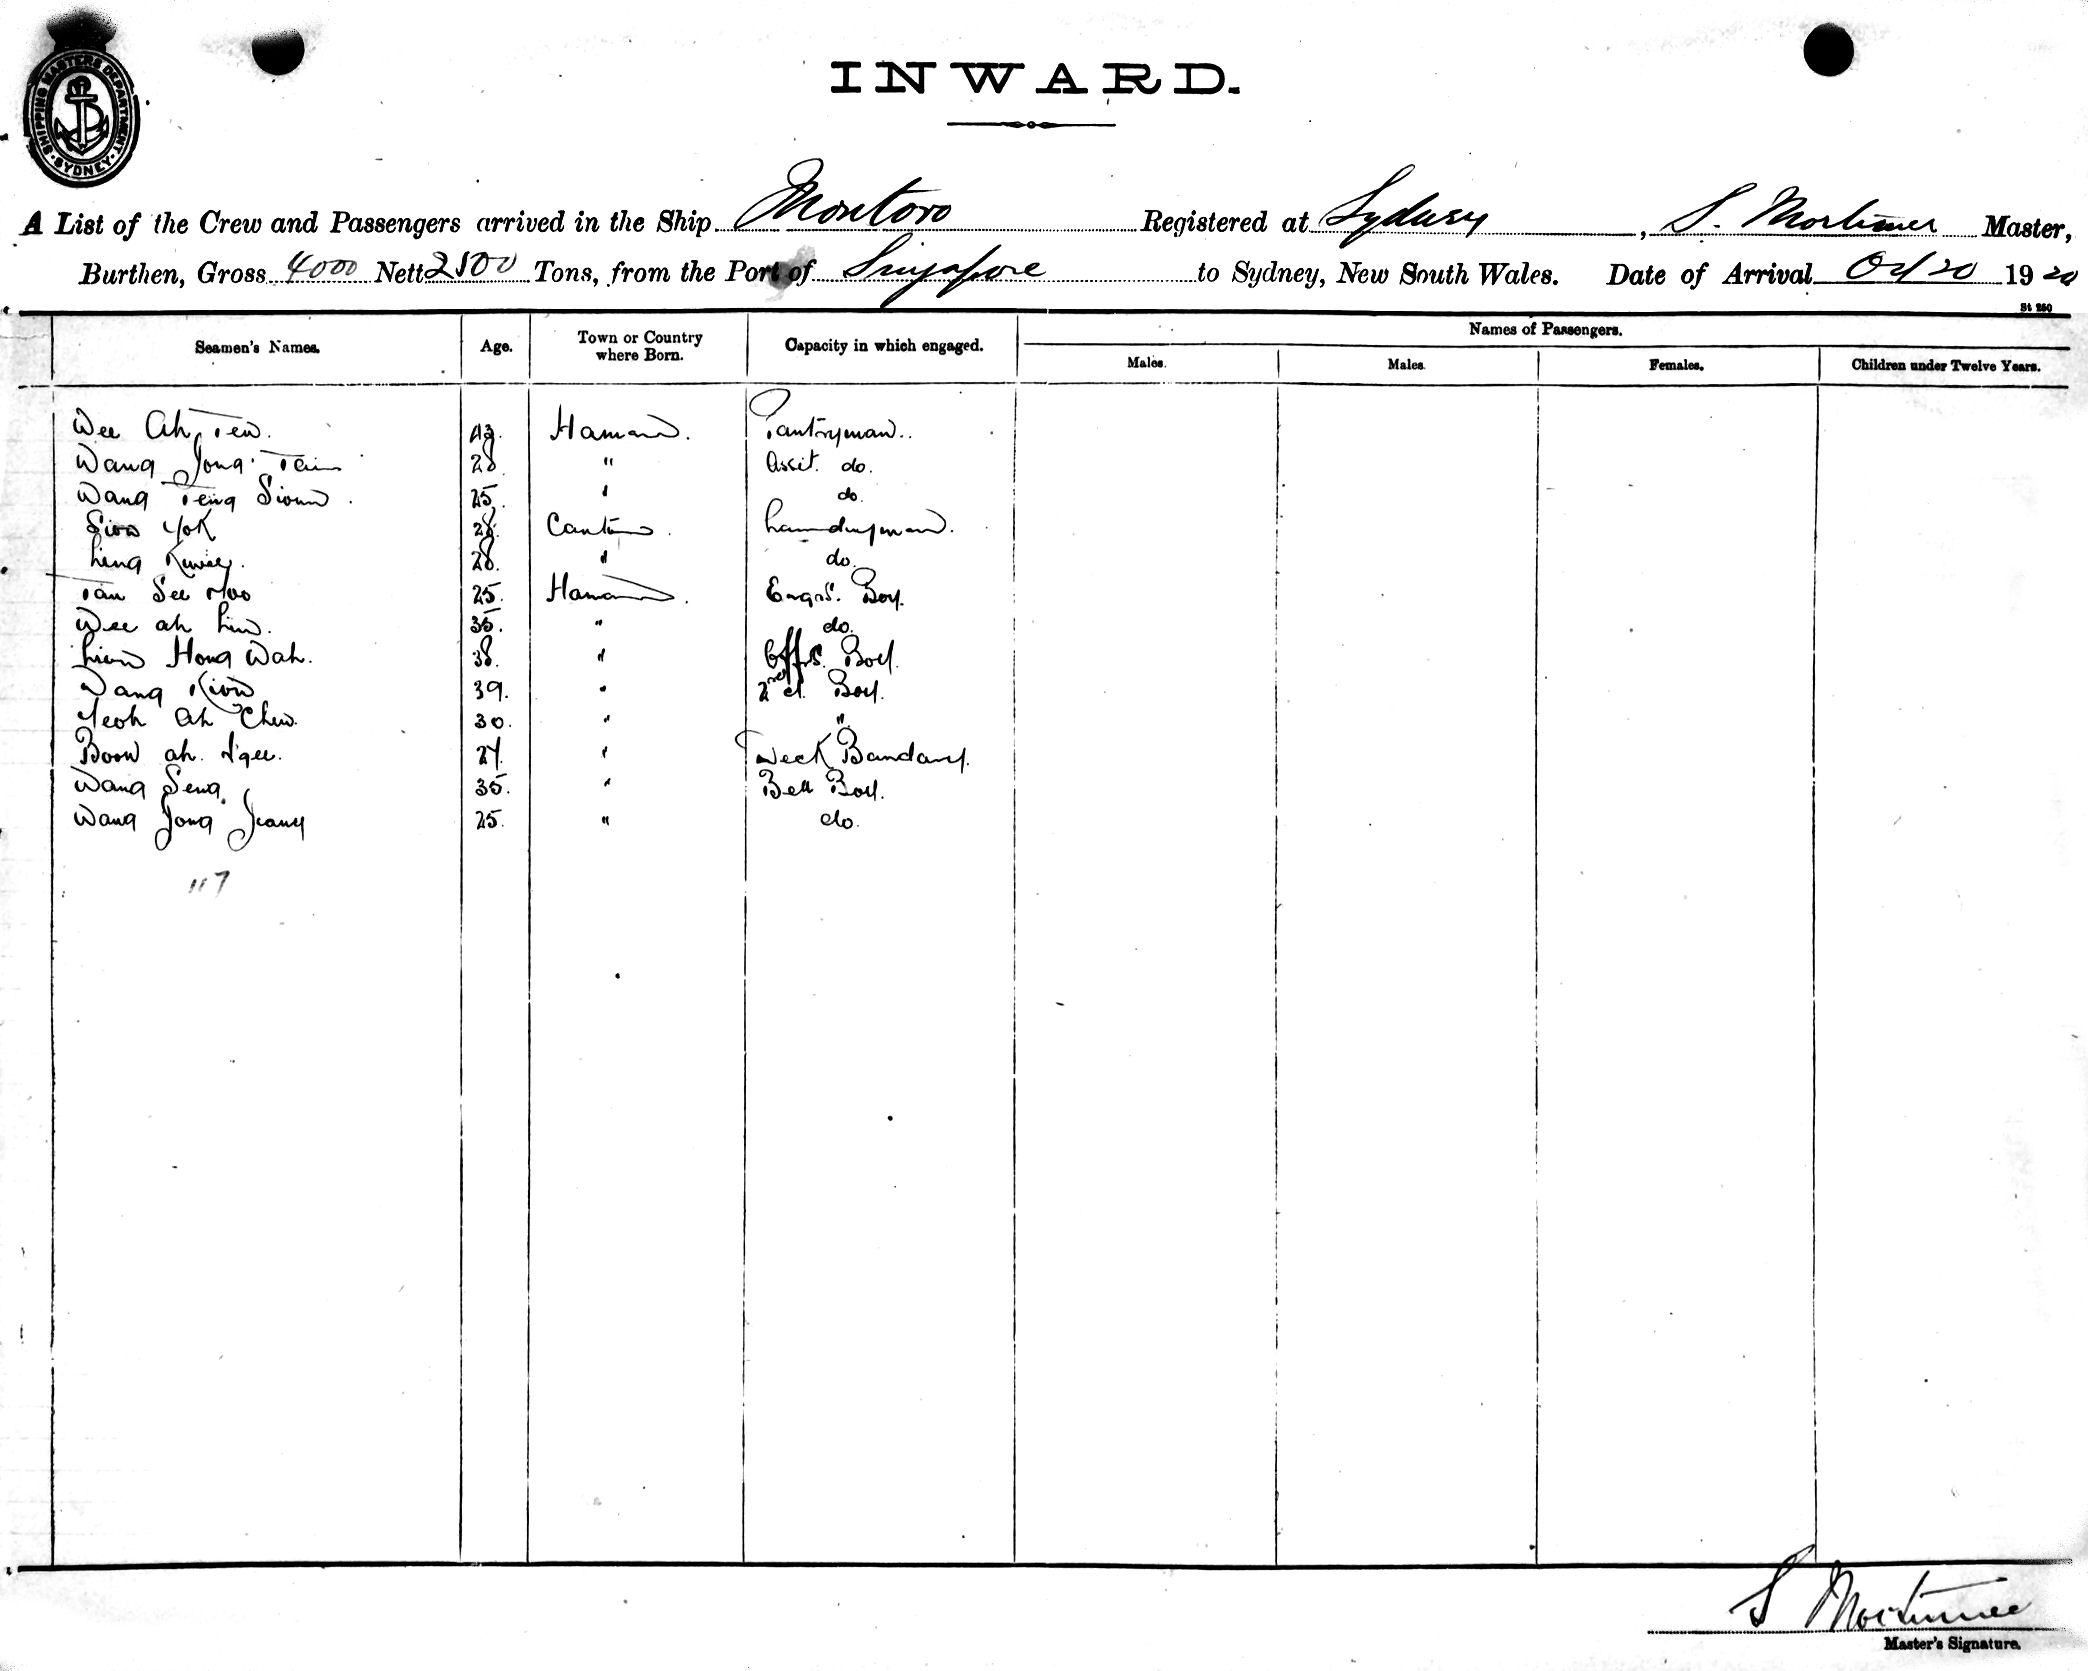 SHIPPING MASTERS DEPARTMENT
SYDNEY
INWARD.
A List of the Crew and Passengers arrived in the Ship Montoro Registered at Sydney, S. Mortimer Master,
Burthen, Gross 4000 Nett 2500 Tons, from the Port of Singapore to Sydney, New South Wales. Date of Arrival Oct 20 1920
St 280
Seamen's Names. Age. Town or Country where Born. Capacity in which engaged. Names of Passengers.
Males. Males. Females. Children under Twelve Years.
Wee Ah Tew. 43. Hainan. Pantryman.
Wang Jong Tain 28 " Asst. do.
Wang Teng Siong. 25. " do.
Siow Yok 28. Canton. Laundryman.
Ling 28. " do.
Tan See Moo 25. Hainan. Engrs. Boy.
Wee ah Lim. 35. " do.
Liem Hong Wah. 38. " Offrs. Boy.
Wang Kiow 39. " 2nd cl. Boy.
Yeoh Ah Chew. 30. " "
Boon ah Ngee. 27. " Deck Bandary.
Wang Seng. 35. " Bell Boy.
Wang Jong 25. " do.
117
S Mortimer
Master's Signature.